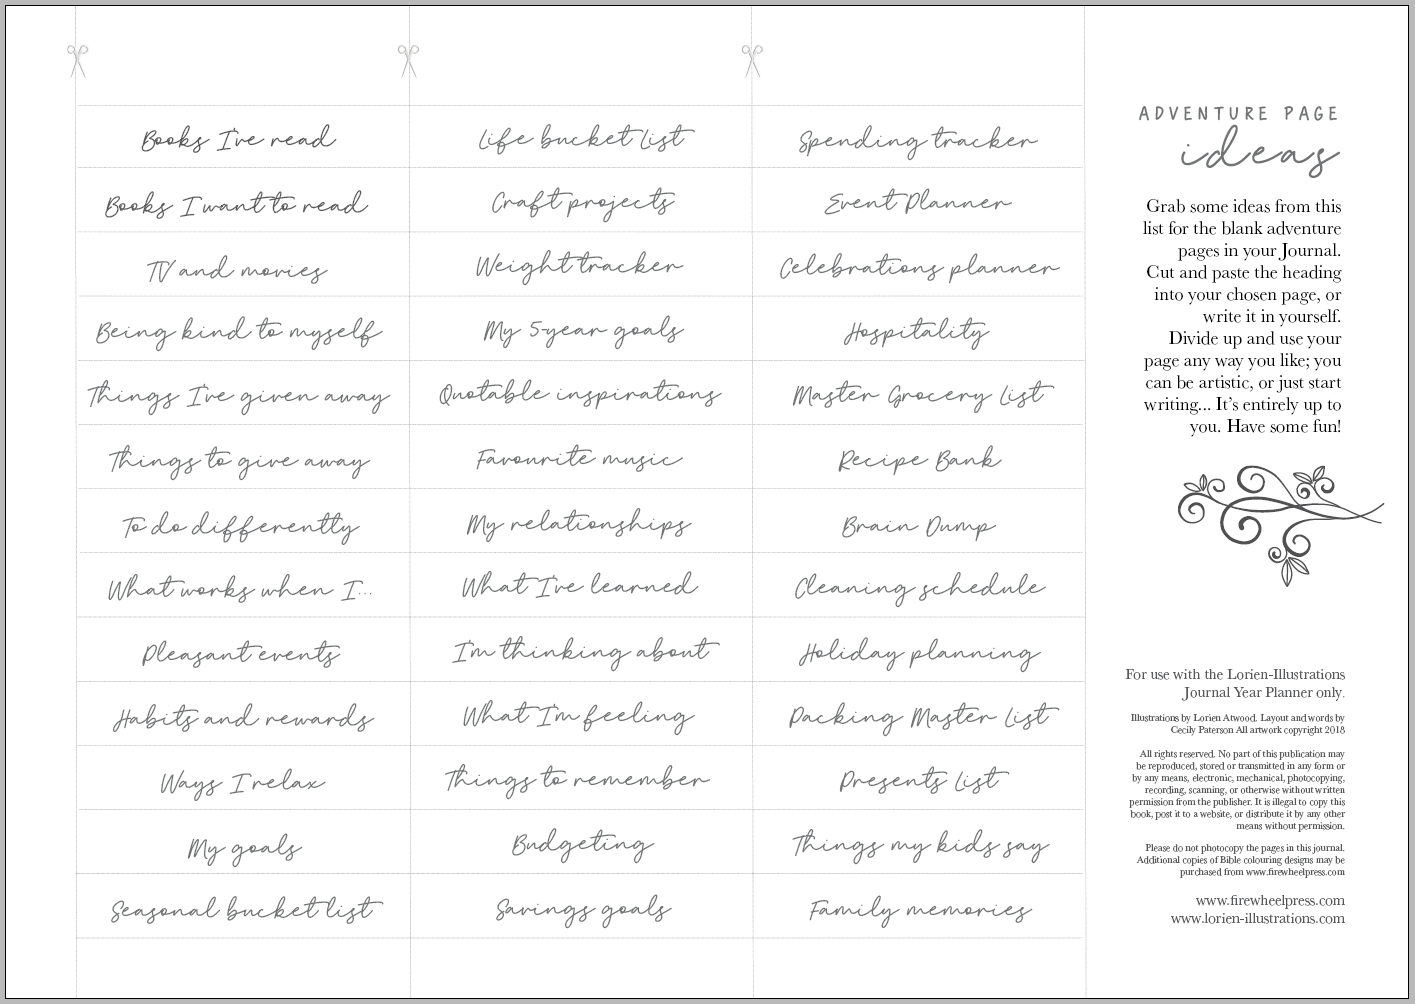 Books I've read
Life bucket list
Spending tracker
Books I want to read
Craft projects
Event Planner
TV and movies
Weight tracker
Celebrations planner
Being kind to myself
My 5-year goals
Hospitality
Things I've given away
Quotable inspirations
Master Grocery List
Things to give away
Favourite music
Recipe Bank
To do differently
My relationships
Brain Dump
What works when I...
What I've learned
Cleaning schedule
Pleasant events
I'm thinking about
Holiday planning
Habits and rewards
What I'm feeling
Packing Master List
Ways I relax
Things to remember
Presents List
My goals
Budgeting
Things my kids say
Seasonal bucket list
Savings goals
Family memories
ADVENTURE PAGE
ideas
Grab some ideas from this
list for the blank adventure
pages in your Journal.
Cut and paste the heading
into your chosen page, or
write it in yourself.
Divide up and use your
page any way you like; you
can be artistic, or just start
writing... It's entirely up to
you. Have some fun!
For use with the Lorien-Illustrations
Journal Year Planner only.
Illustrations by Lorien Atwood. Layout and words by
Cecily Paterson All artwork copyright 2018
All rights reserved. No part of this publication may
be reproduced, stored or transmitted in any form or
by any means, electronic, mechanical, photocopying,
recording, scanning, or otherwise without written
permission from the publisher. It is illegal to copy this
book, post it to a website, or distribute it by any other
means without permission.
Please do not photocopy the pages in this journal.
Additional copies of Bible colouring designs may be
purchased from www.firewheelpress.com
www.firewheelpress.com
www.lorien-illustrations.com